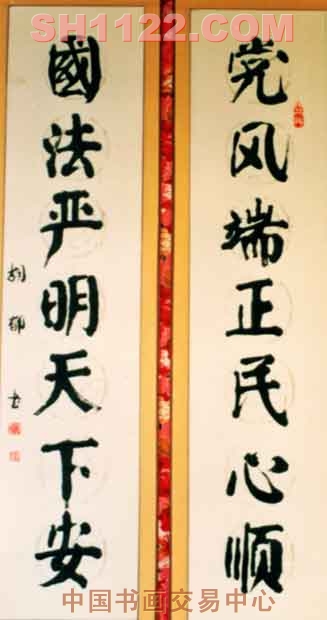 SH1122.COM
党风端正民心顺
國法严明天下安
中国书画交易中心